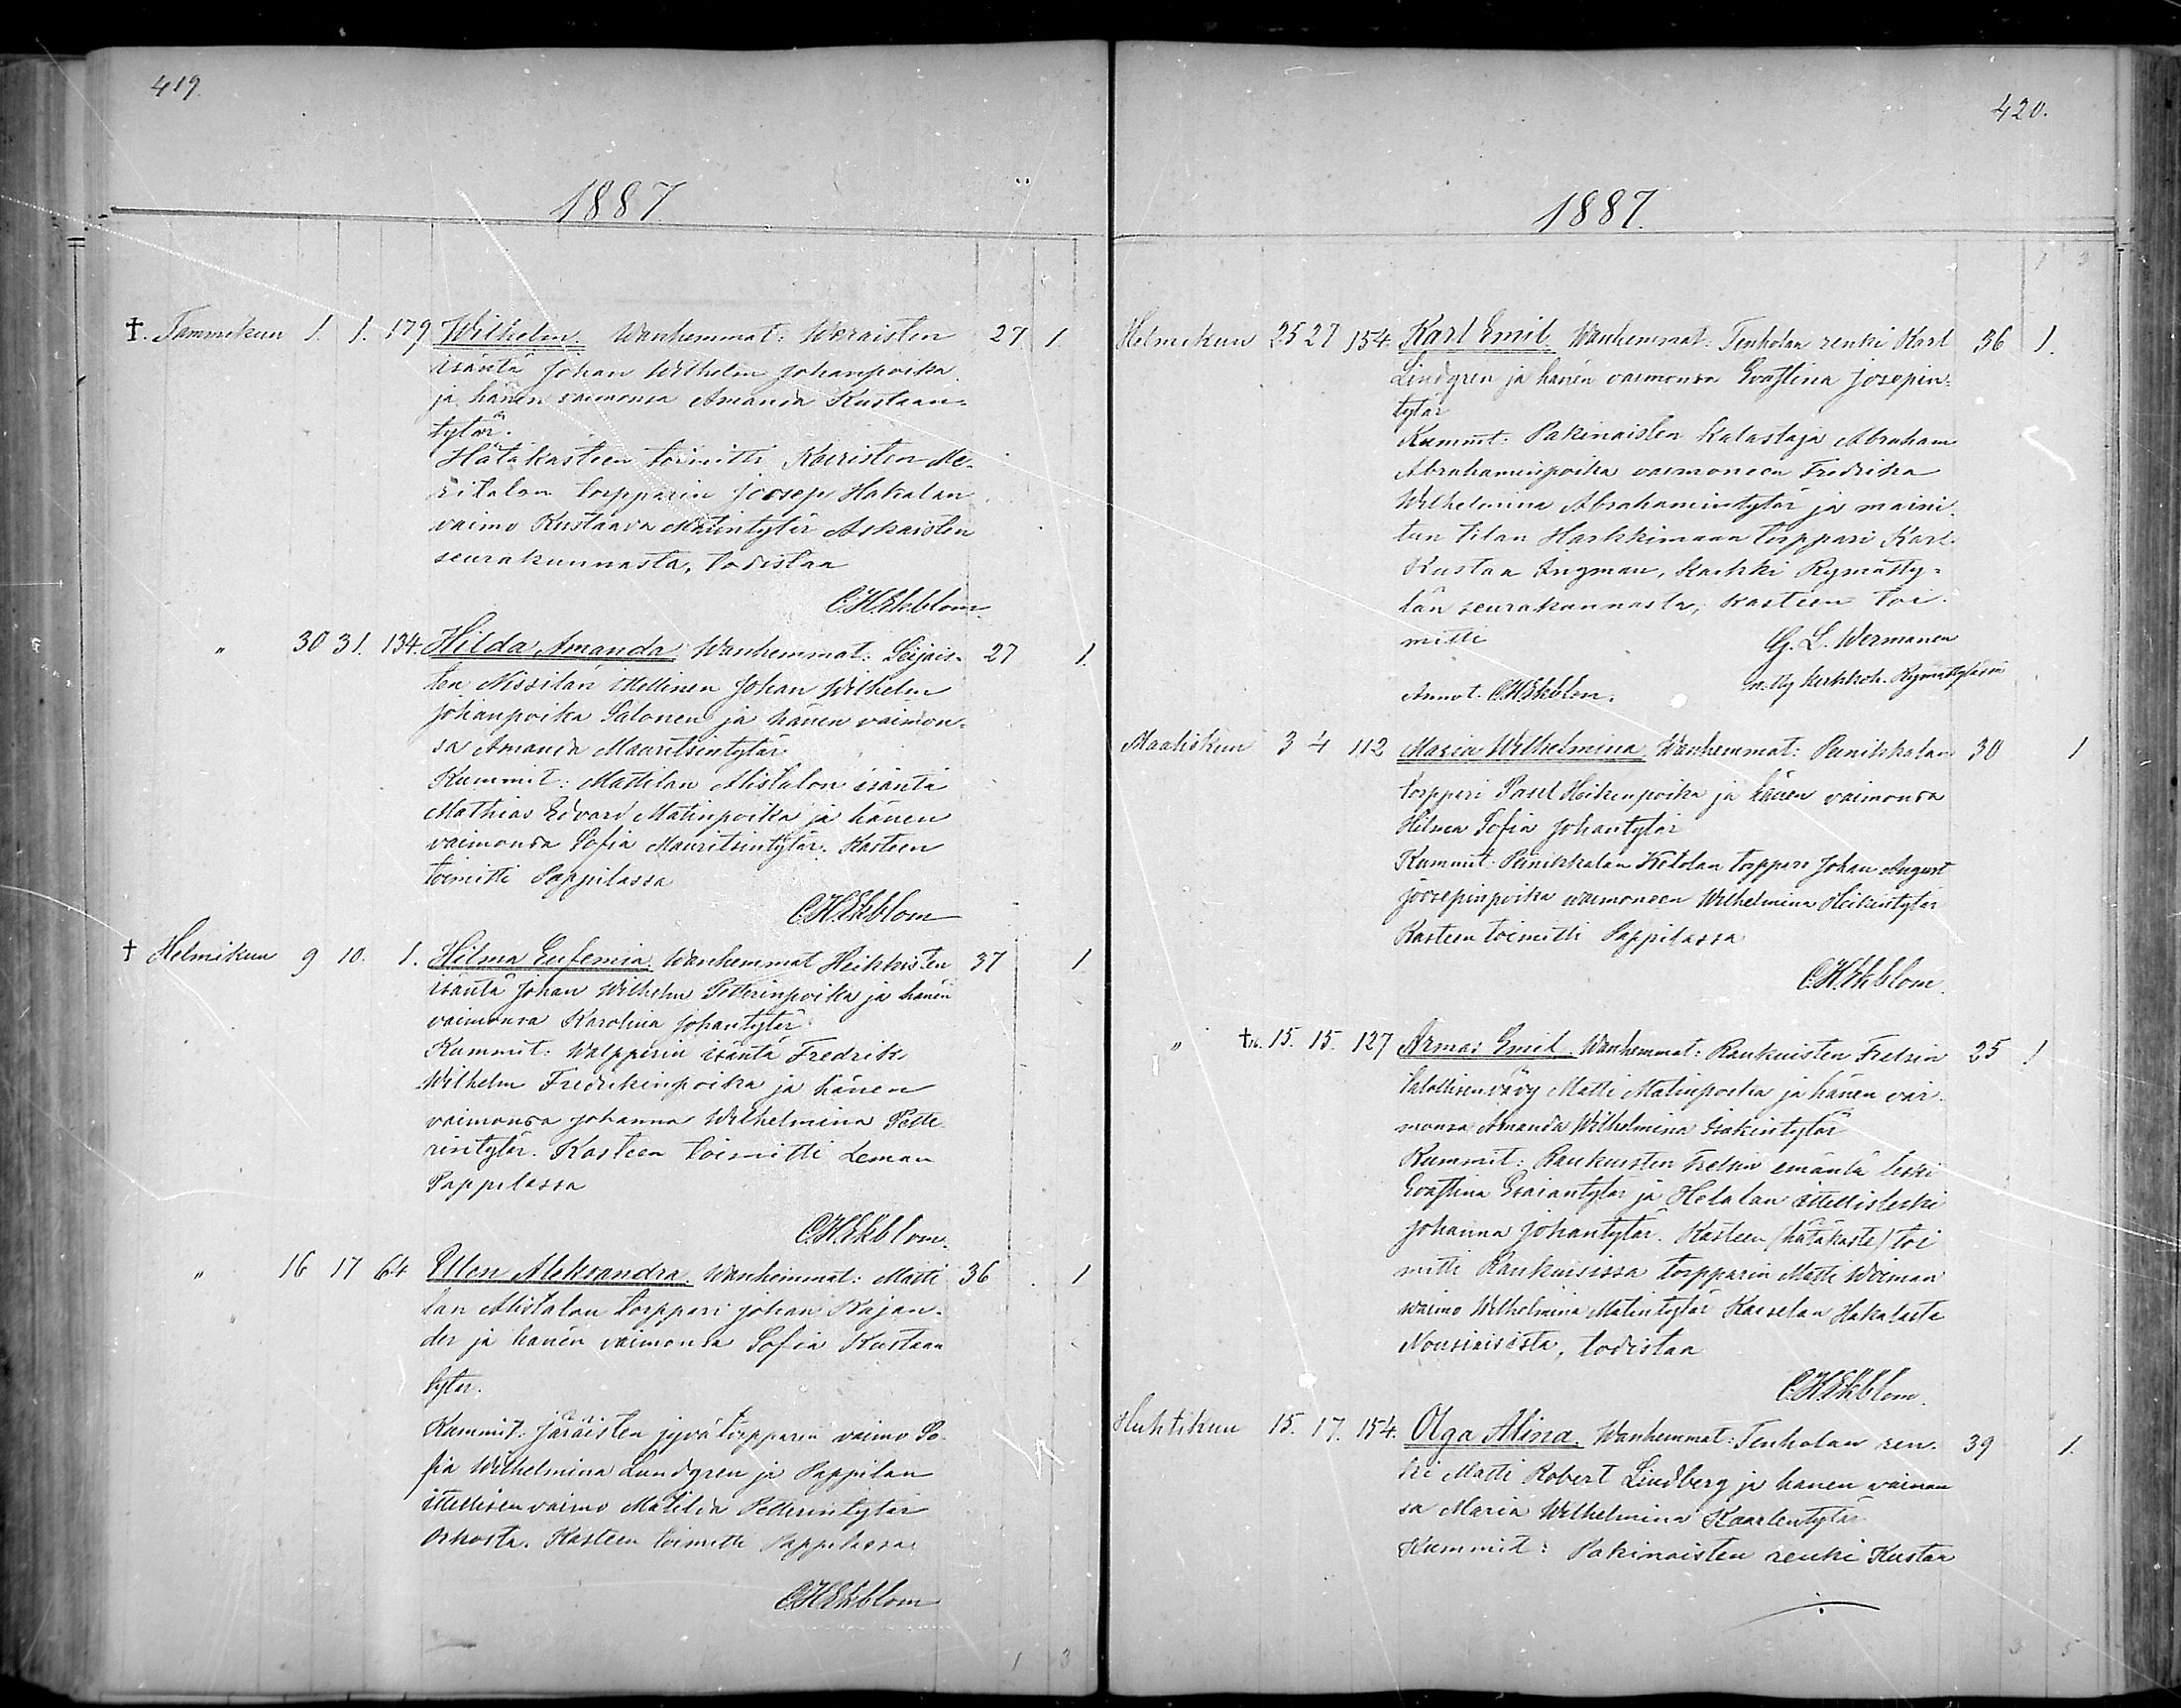 419.
1887.
†. Tammikun 1. 1. 179 Wilhelm. Wanhemmat: Weraisten 27 1.
isäntä Johan Wilhelm Johanpoika
ja hänen vaimonsa Amanda Kustaan-
tytär.
Hätäkasteen toimitti Kairisten Me-
ritalon torpparin Joosep Hakalan
vaimo Kustaava Matintytär Askaisten
seurakunnasta, todistaa
C.H.Ekblom.
" 30 31. 134. Hilda Amanda Wanhemmat: Seijais- 27 1.
ten Nissilän ittellinen Johan Wilhelm
Johanpoika Salonen ja hänen vaimon-
sa Amanda Mauritsintytär
Kummit: Mattilan Alistalon isäntä
Mathias Edvard Matinpoika ja hänen
vaimonsa Sofia Mauritsintytär. Kasteen
toimitti Pappilassa
C.H.Ekblom
† Helmikun 9 10. 1. Hilma Eufemia. Wanhemmat Heikkisten 37 1
isäntä Johan Wilhelm Petterinpoika ja hänen
vaimonsa Karolina Johantytär
Kummit: Walpperin isäntä Fredrik
Wilhelm Fredrikinpoika ja hänen
vaimonsa Johanna Wilhelmina Pette
rintytär. Kasteen toimitti Leman
Pappilassa
C.H.Ekblom.
" 16 17 64 Ellen Aleksandra. Wanhemmat: Matti 36 1
lan Alistalon torppari Johan Kajan-
der ja hänen vaimonsa Sofia Kustaan
tytär.
Kummit: Järäisten jyvätorpparin vaimo So-
fia Wilhelmina Lundgren ja Pappilan
ittellisen vaimo Matilda Petterintytär
Oskosta. Kasteen toimitti Pappilassa
C.H.Ekblom
1 3
420.
1887.
1 3
Helmikun 25 27 154. Karl Emil. Wanhemmat: Tenholan renki Karl 36 1.
Lindgren ja hänen vaimonsa Evastina Josepin-
tytär
Kummit: Pakinaisten kalastaja Abraham
Abrahaminpoika vaimoneen Fredrika
Wilhelmina Abrahamintytär ja maini-
tun tilan Harkkimaan torppari Karl
Kustaa Ingman, kaikki Rymätty-
län seurakunnasta, kasteen toi-
mitti G. L. Wermanen
Annot. C.H.Ekblom. kirkkoh. Rymättylässä
Maaliskun 3 4 112 Maria Wilhelmina Wanhemmat: Punikkalan 30 1
torppari Paul Heikinpoika ja hänen vaimonsa
Hilma Sofia Johantytär
Kummit: Punikkalan Ketolan torppari Johan August
Joosepinpoika vaimoneen Wilhelmina Heikintytär
Kasteen toimitti Pappilassa
C.H.Ekblom.
" †16. 15. 15. 127 Armas Emil. Wanhemmat: Raukuisten Frelsin 25 1
talollisen vävy Matti Matinpoika ja hänen vai-
monsa Amanda Wilhelmina Isakintytär
Kummit: Raukuisten Frelsin emäntä leski
Evastina Esaiantytär ja Helalan ittellisleski
Johanna Johantytär. Kasteen (hätäkaste) toi
mitti Raukuisissa torpparin Matti Woiman
vaimo Wilhelmina Matintytär Kaiselan Hakalasta
Nousiaisista, todistaa
C.H.Ekblom.
Huhtikun 15. 17. 154. Olga Alina. Wanhemmat: Tenholan ren- 39 1.
ki Matti Robert Lindberg ja hänen vaimon
sa Maria Wilhelmina Kaarlentytär
Kummit: Pakinaisten renki Kustaa
3 5